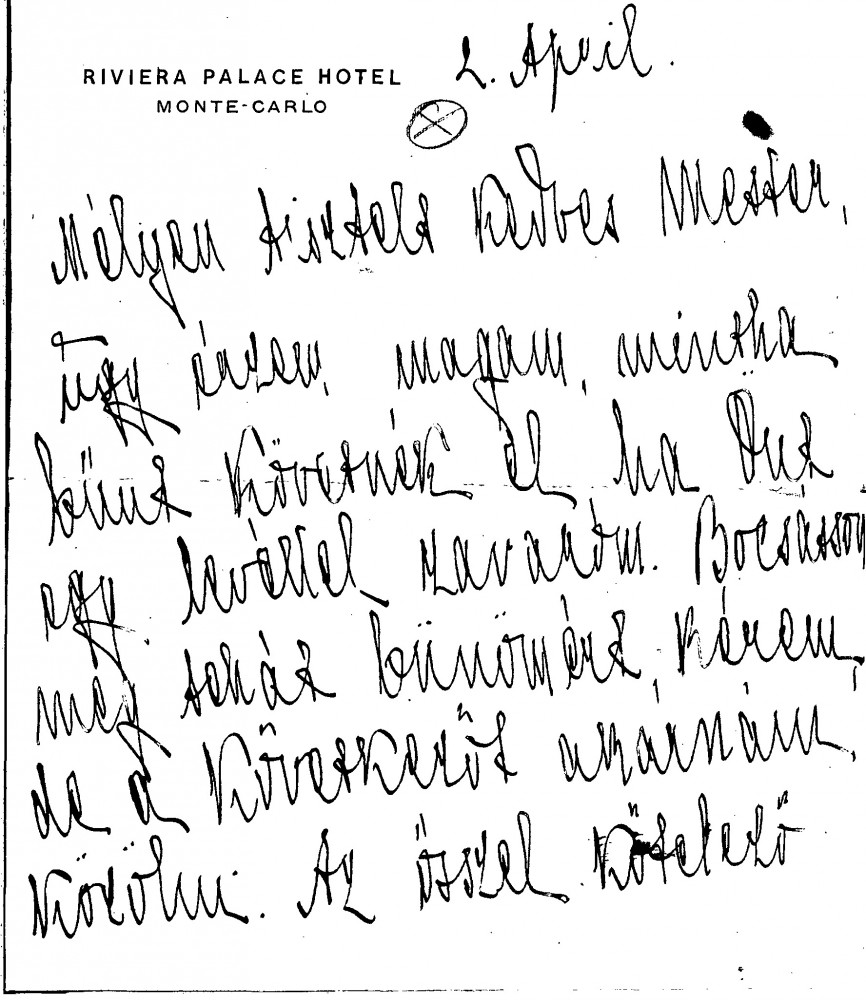 RIVIERA PALACE HOTEL
MONTE-CARLO
2. April.
Mélyen tisztelt Kedves Mester,
úgy érzem magam, mintha
bűnt követnék el, ha Önt
egy levéllel zavarom. Bocsásson
meg tehát bünömért, kérem,
de a következőt akárnám
közölni. Az ősszel kötelező